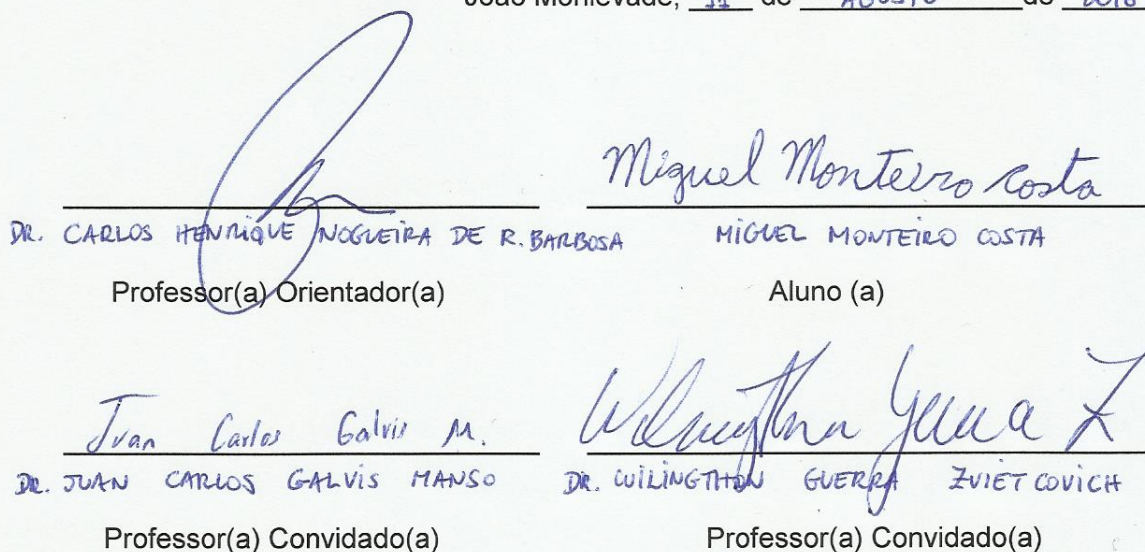 João Monlevade, 11 de AGOSTO de 2016
Miguel Monteiro Costa
DR. CARLOS HENRIQUE NOGUEIRA DE R. BARBOSA MIGUEL MONTEIRO COSTA
Professor(a) Orientador(a) Aluno (a)
Juan Carlos Galvis M. Wilingthon Guerra Z
DR. JUAN CARLOS GALVIS MANSO DR. WILINGTHON GUERRA ZVIETCOVICH
Professor(a) Convidado(a) Professor(a) Convidado(a)